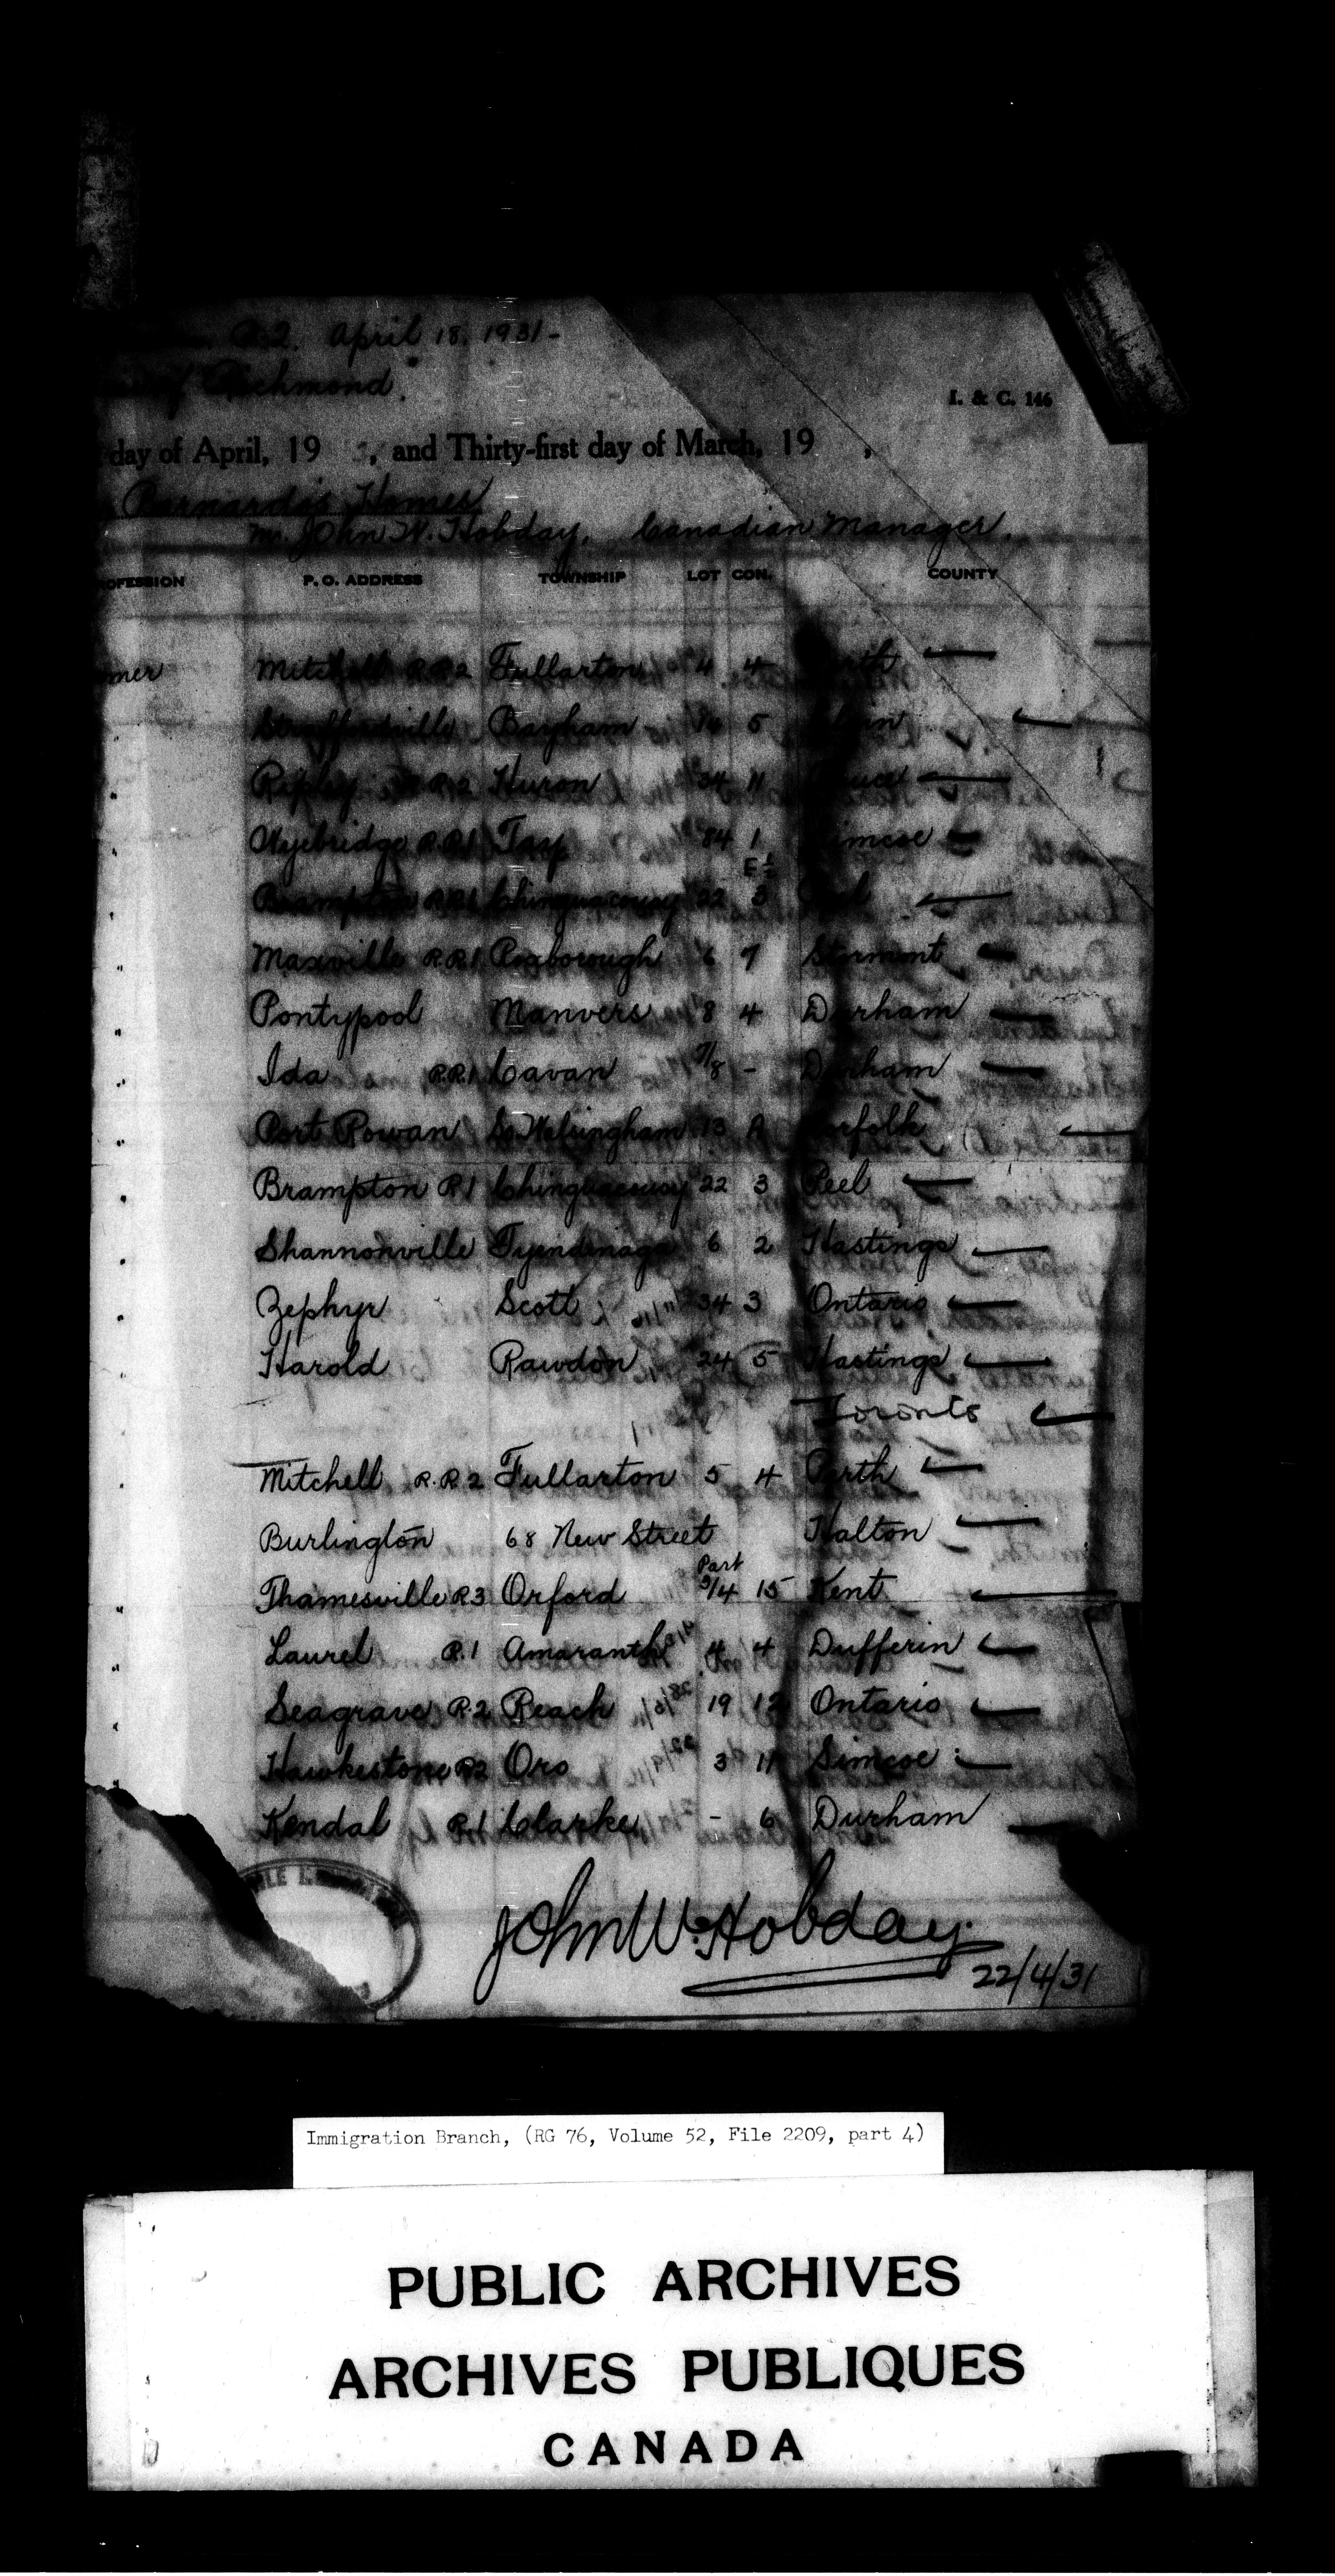 P.2. April 18, 1931-
of Richmond.
I. & C. 146
day of April, 19 , and Thirty-first day of March, 19 ,
Barnardo's Homes
Mr. John W. Hobday, Canadian Manager.
OFESSION P. O. ADDRESS TOWNSHIP LOT CON. COUNTY
mer Mitchell R.R.2 Fullarton 4 4 Perth
" Straffordville Bayham 14 5 Elgin
" Ripley R.R.2 Huron 34 11 Bruce
" Wyebridge R.R.1 Tay 84 1 Simcoe
E½
" Brampton R.R.1 Chinguacousy 22 3 Peel
" Maxville R.R.1 Roxborough 6 7 Stormont
" Pontypool Manvers 8 4 Durham
" Ida R.R.1 Cavan 7/8 - Durham
" Port Rowan So. Walsingham 13 A Norfolk
" Brampton R.1 Chinguacousy 22 3 Peel
" Shannonville Tyendinaga 6 2 Hastings
" Zephyr Scott 34 3 Ontario
" Harold Rawdon 24 5 Hastings
Toronto
Mitchell R.R.2 Fullarton 5 4 Perth
Burlington 68 New Street Halton
Part
" Thamesville R3 Orford 3/4 15 Kent
" Laurel R.1 Amaranth 4 4 Dufferin
" Seagrave R.2 Reach 19 12 Ontario
" Hawkestone R2 Oro 3 11 Simcoe
Kendal R.1 Clarke - 6 Durham
John W. Hobday.
22/4/31
Immigration Branch, (RG 76, Volume 52, File 2209, part 4)
PUBLIC ARCHIVES
ARCHIVES PUBLIQUES
CANADA